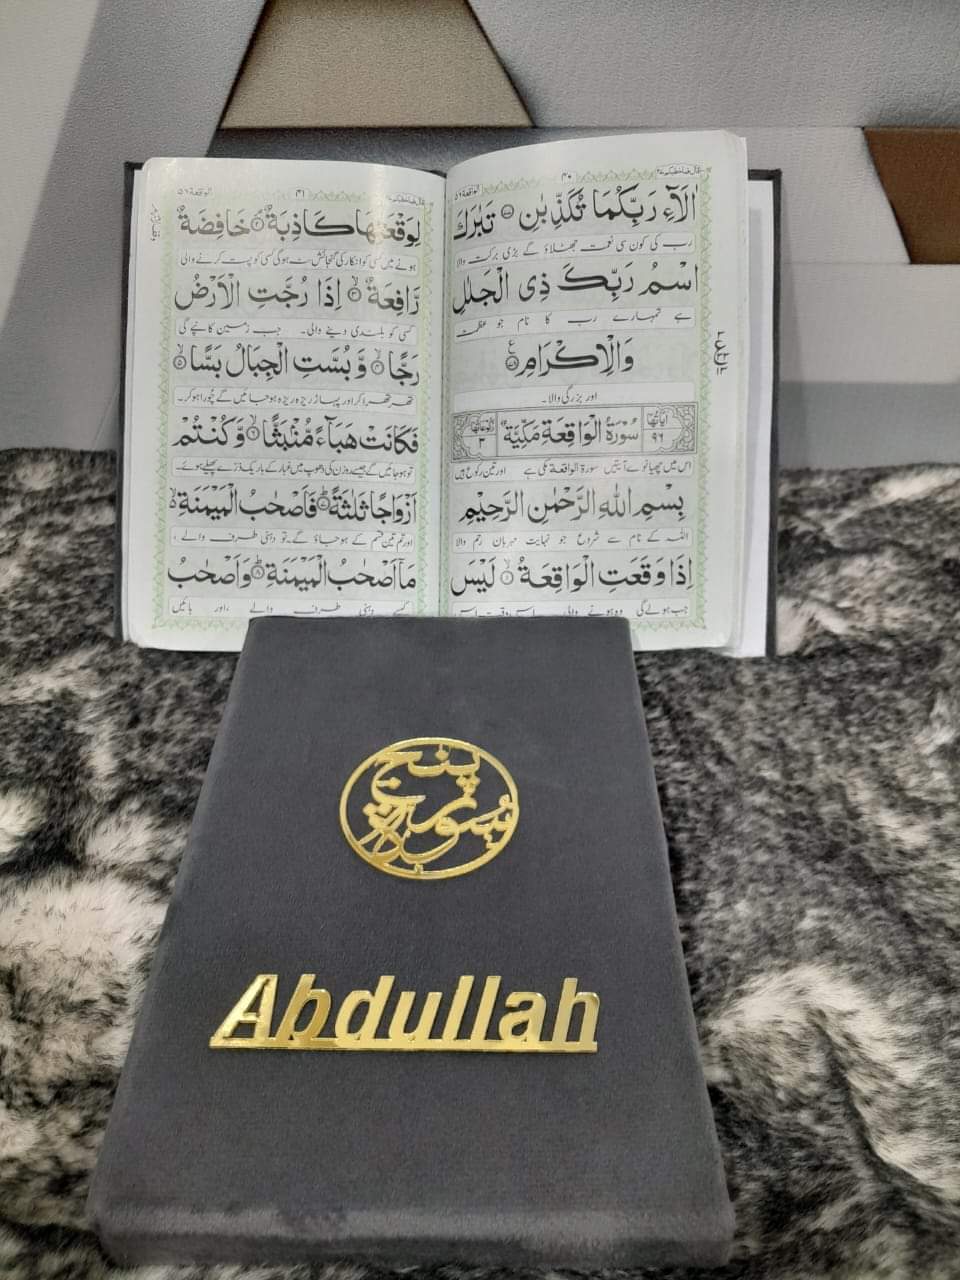 قال فما خطبکم ۲۷
۴۰
الواقعة ۵۶
اٰلَآءِ رَبِّكُمَا تُكَذِّبٰنِ ۝ تَبٰرَكَ
رب کی کون سی نعمت جھٹلاؤ گے بڑی برکت والا
اسْمُ رَبِّكَ ذِی الْجَلٰلِ
ہے تمہارے رب کا نام جو عظمت
وَالْاِكْرَامِ ۝
اور بزرگی والا۔
اٰیاتها ۹۶
سُوْرَةُ الْوَاقِعَةِ مَكِّیَّةٌ
رکوعاتها ۳
اس میں چھیانوے آیتیں سورۃ الواقعۃ مکی ہے اور تین رکوع ہیں
بِسْمِ اللّٰهِ الرَّحْمٰنِ الرَّحِیْمِ
اللہ کے نام سے شروع جو نہایت مہربان رحم والا
اِذَا وَقَعَتِ الْوَاقِعَةُ ۝۱ لَیْسَ
جب ہولے گی وہ ہونے والی اس وقت اس
۴۱
الواقعة ۵۶
لِوَقْعَتِهَا كَاذِبَةٌ ۝۲ خَافِضَةٌ
ہونے میں کسی کو انکار کی گنجائش نہ ہوگی کسی کو پست کرنے والی
رَّافِعَةٌ ۝۳ اِذَا رُجَّتِ الْاَرْضُ
کسی کو بلندی دینے والی۔ جب زمین کانپے گی
رَجًّا ۝۴ وَّ بُسَّتِ الْجِبَالُ بَسًّا ۝۵
تھرتھرا کر اور پہاڑ ریزہ ریزہ ہوجائیں گے چُورا ہوکر۔
فَكَانَتْ هَبَآءً مُّنْۢبَثًّا ۝۶ وَّ كُنْتُمْ
تو ہوجائیں گے جیسے روزن کی دھوپ میں غبار کے باریک ذرّے پھیلے ہوئے۔
اَزْوَاجًا ثَلٰثَةً ۝۷ فَاَصْحٰبُ الْمَیْمَنَةِ
اور تم تین قسم کے ہوجاؤ گے۔ تو دہنی طرف والے ،
مَاۤ اَصْحٰبُ الْمَیْمَنَةِ ۝۸ وَ اَصْحٰبُ
کیسے دہنی طرف والے ، اور بائیں
پنج
سورہ
Abdullah